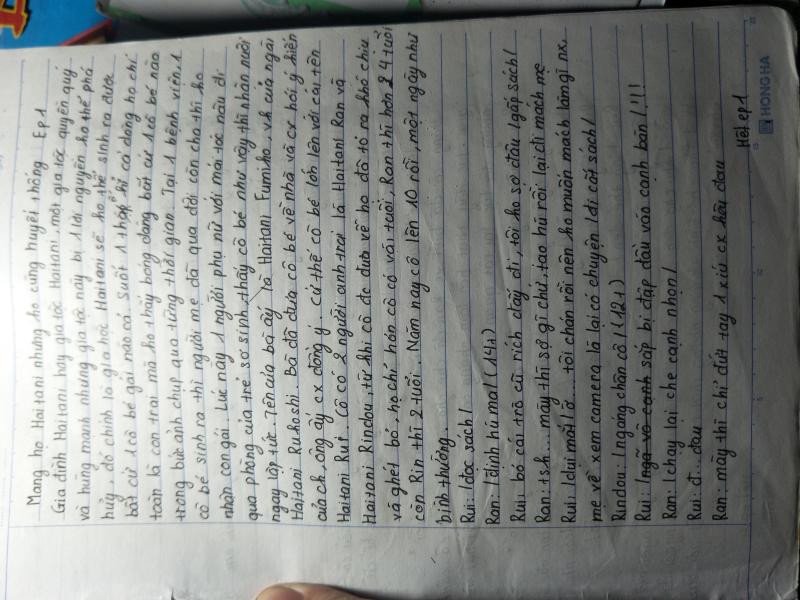 Mang họ Haitani nhưng ko cùng huyết thống Ep1
Gia đình Haitani hay gia tộc Haitani, một gia tộc quyền quý
và hùng mạnh nhưng gia tộc này bị 1 lời nguyền ko thể phá
huỷ, đó chính là gia tộc Haitani sẽ ko thể sinh ra được
bất cứ 1 cô bé gái nào cả. Suốt 1 thập kỉ cả dòng họ chỉ
toàn là con trai mà ko thấy bóng dáng bất cứ 1 cô bé nào
trong bức ảnh chụp qua từng thời gian. Tại 1 bệnh viện 1
cô bé sinh ra thì người mẹ đã qua đời còn cha thì ko
nhận con gái. Lúc này 1 người phụ nữ với mái tóc nâu đi
qua phòng của trẻ sơ sinh thấy cô bé như vậy thì nhận nuôi
ngay lập tức. Tên của bà ấy là Haitani Fumiko, vk của ngài
Haitani Ruhoshi. Bà đã đưa cô bé về nhà và cx hỏi ý kiến
của ck, ông ấy cx đồng ý. Cứ thế cô bé lớn lên với cái tên
Haitani Rui. Cô có 2 người anh trai là Haitani Ran và
Haitani Rindou, từ khi cô đc đưa về họ đã tỏ ra khó chịu
và ghét bỏ, họ chỉ hơn cô có vài tuổi, Ran thì hơn 4 tuổi
còn Rin thì 2 tuổi. Năm nay cô lên 10 rồi, một ngày như
bình thường.
Rui: /đọc sách/
Ran: /định hù ma/ (14t)
Rui: bỏ cái trò cũ rích đấy đi, tôi ko sợ đâu /gấp sách/
Ran: tsk... mày thì sợ gì chứ, tao hù rồi lại đi mách mẹ
Rui: /dụi mắt/ ờ... tôi chán rồi nên ko muốn mách làm gì nx.
mẹ về xem camera là lại có chuyện /đi cất sách/
Rindou: /ngáng chân cô/ (12t)
Rui: /ngã vô canh sắp bị đập đầu vào cạnh bàn/!!!
Ran: /chạy lại che cạnh nhọn/
Rui: đ... đau
Ran: mày thì chỉ đứt tay 1 xíu cx kêu đau
Hết ep1
HONG HA